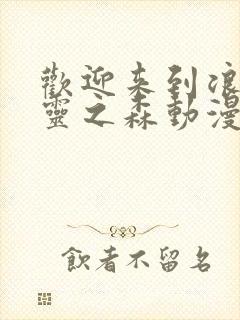 歡迎来到浪
靈之森動漫
飲者不留名